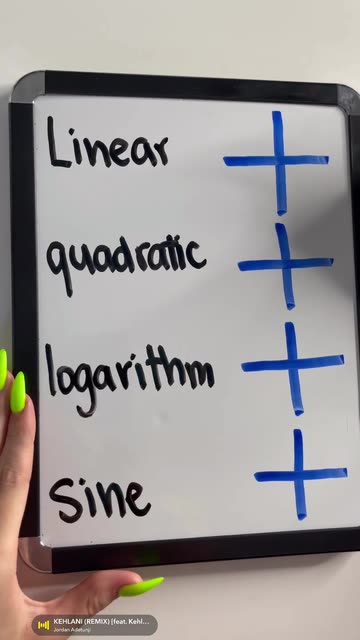 Linear
quadratic
logarithm
sine
KEHLANI (REMIX) [feat. Kehl...
Jordan Adetunji